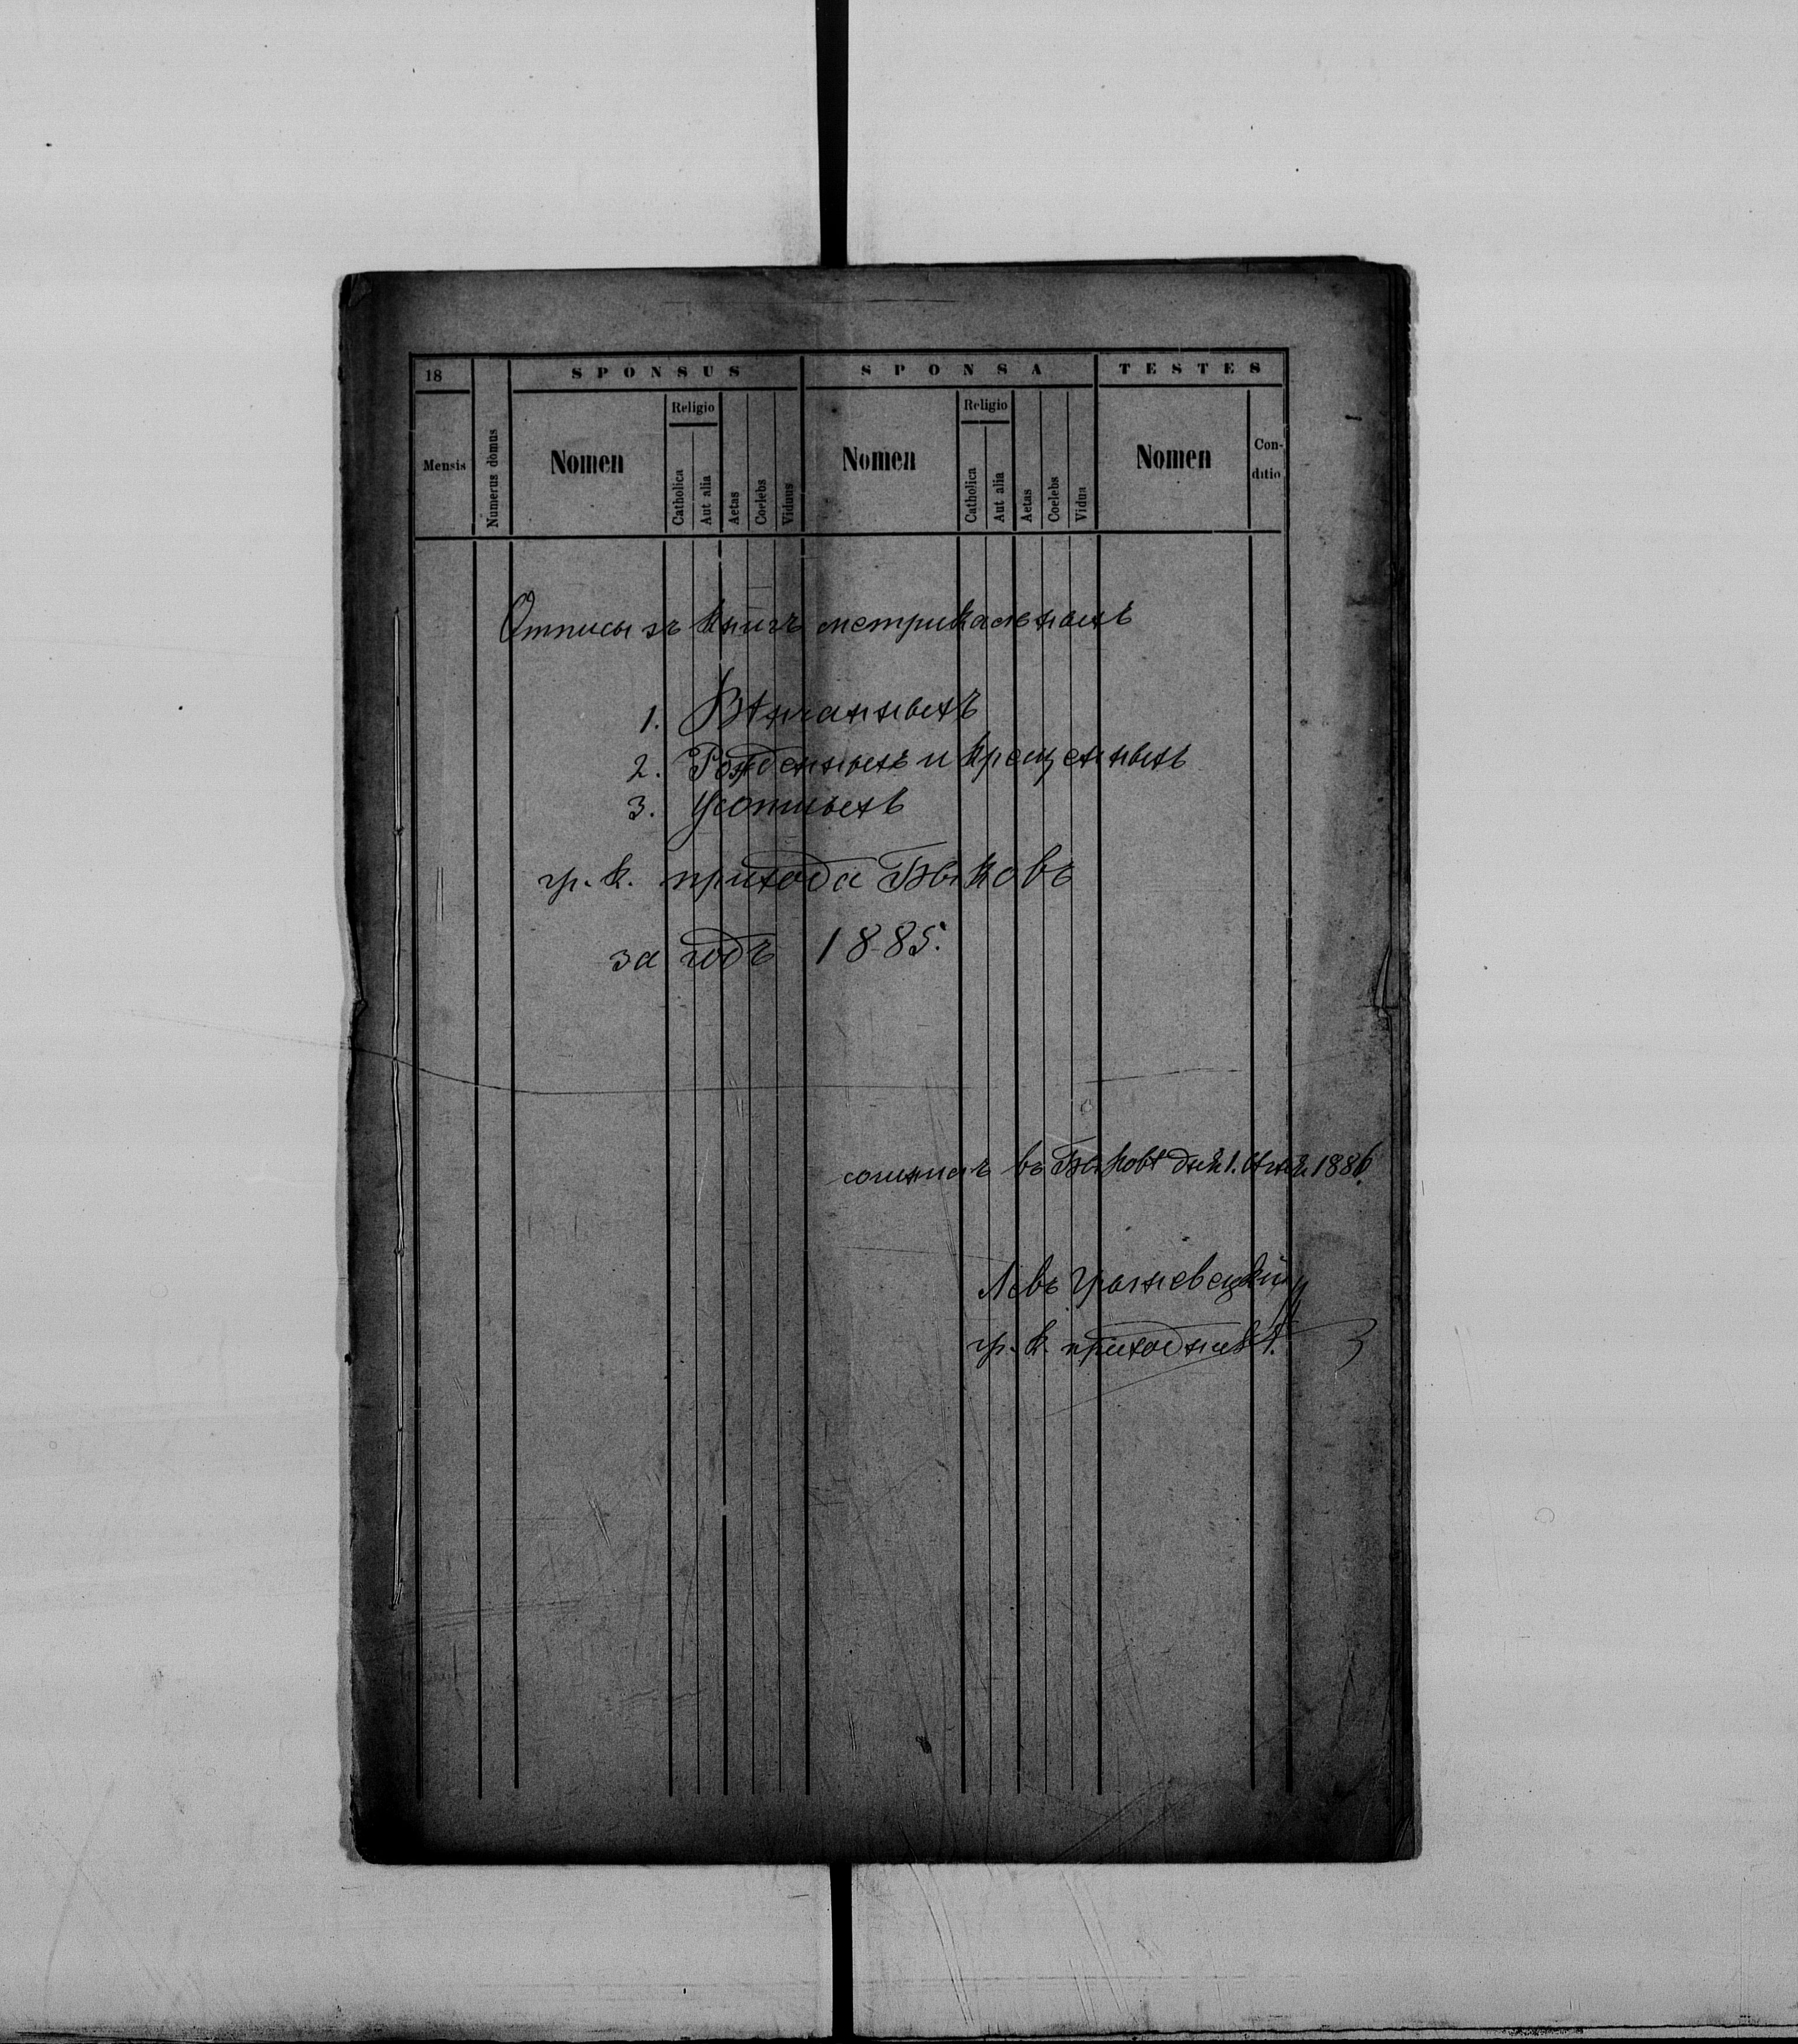 18
SPONSUS SPONSA TESTES
Mensis Numerus domus Nomen Religio Catholica Aut alia Aetas Coelebs Viduus Nomen Religio Catholica Aut alia Aetas Coelebs Vidua Nomen Con-
ditio
Отписы зъ книгъ метрикальныхъ
1. Вѣнчанныхъ
2. Рожденныхъ и крещенныхъ
3. Усопшыхъ
гр. к. прихода Быковъ
за годъ 1885.
въ Быковѣ дня 1. 1886.
Левъ
гр. к. приходникъ.